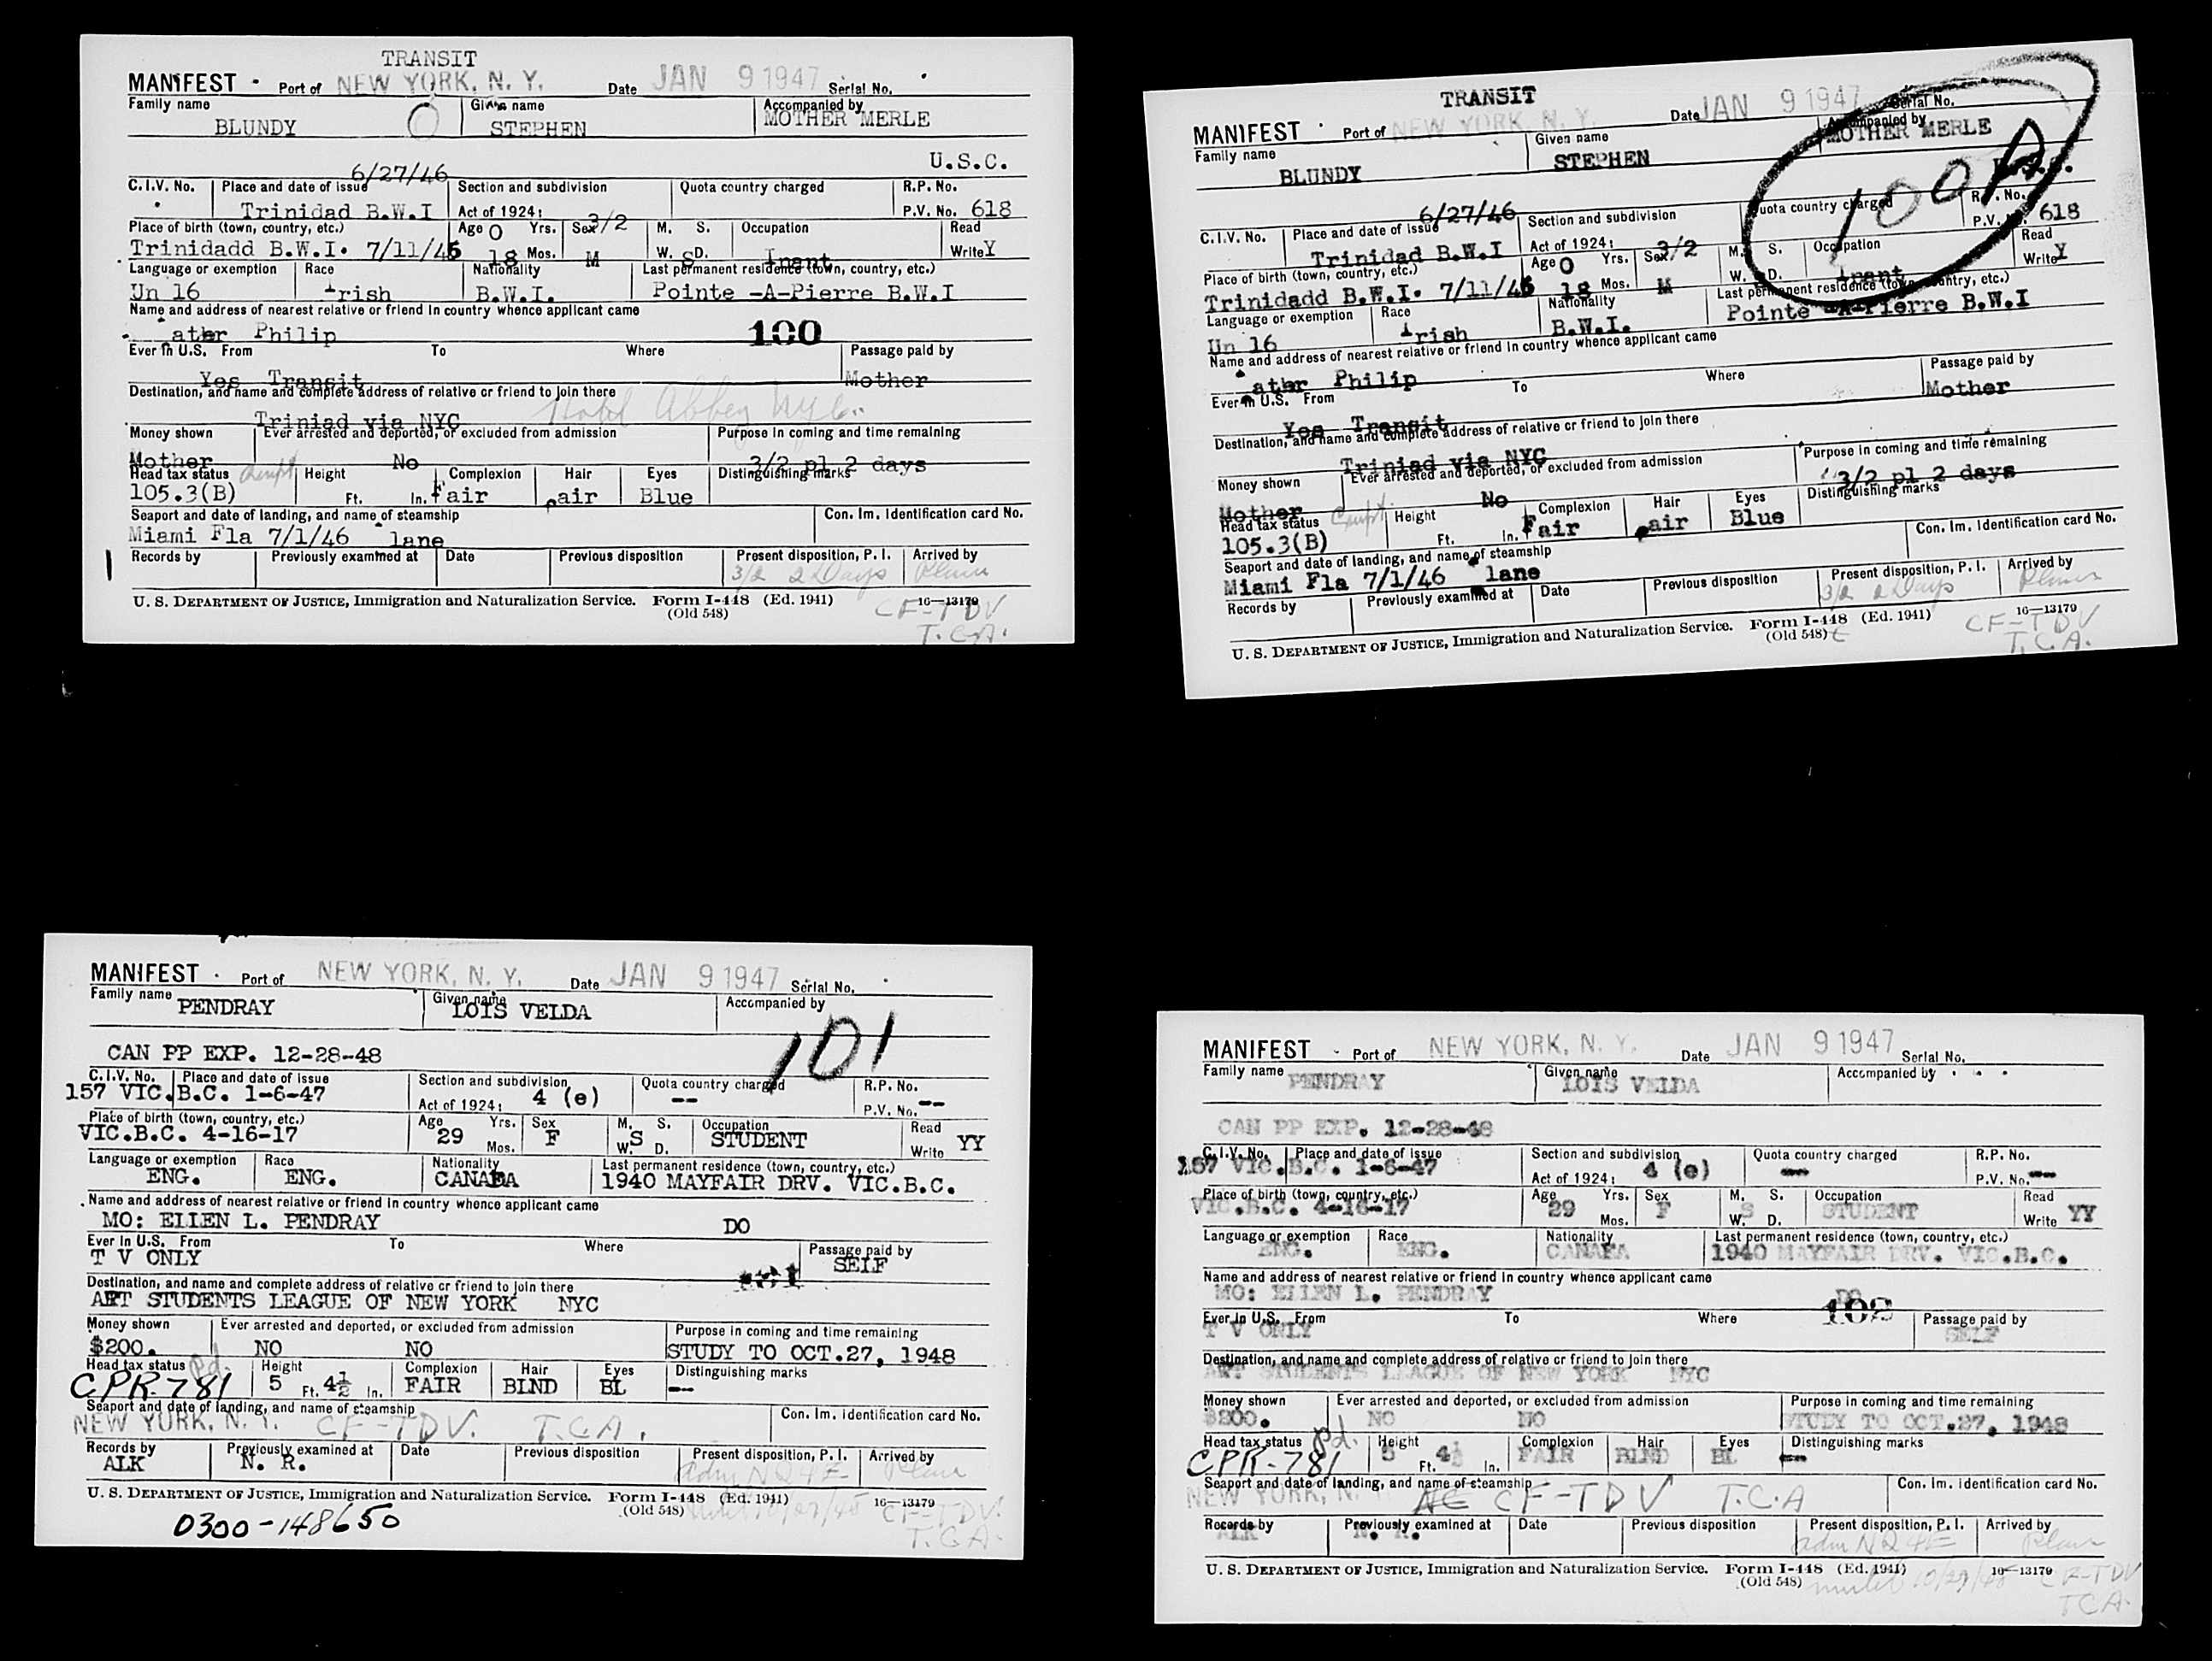 TRANSIT
MANIFEST · Port of NEW YORK, N. Y. Date JAN 9 1947 Serial No.
Family name Given name Accompanied by
BLUNDY STEPHEN MOTHER MERLE
U.S.C.
6/27/46
C.I.V. No. Place and date of issue Section and subdivision Quota country charged R.P. No.
Trinidad B.W.I Act of 1924: P.V. No. 618
Place of birth (town, country, etc.) Age 0 Yrs. Sex 3/2 M. S. Occupation Read
Trinidadd B.W.I. 7/11/45 18 Mos. M W. S D. Write Y
Language or exemption Race Nationality Last permanent residence (town, country, etc.)
Un 16 Irish B.W.I. Pointe -A-Pierre B.W.I
Name and address of nearest relative or friend in country whence applicant came
ather Philip 100
Ever in U.S. From To Where Passage paid by
Yes Transit Mother
Destination, and name and complete address of relative or friend to join there
Triniad via NYC Hotel Abbey NYC.
Money shown Ever arrested and deported, or excluded from admission Purpose in coming and time remaining
Mother No 3/2 pl 2 days
Head tax status Height Complexion Hair Eyes Distinguishing marks
105.3(B) Ft. In. Fair air Blue
Seaport and date of landing, and name of steamship Con. Im. Identification card No.
Miami Fla 7/1/46 lane
Records by Previously examined at Date Previous disposition Present disposition, P. I. Arrived by
3/2 2 Days Plane
U. S. DEPARTMENT OF JUSTICE, Immigration and Naturalization Service. Form I-448 (Ed. 1941) 16—13179
(Old 548) CF-TDV
T.C.A.
TRANSIT
MANIFEST · Port of NEW YORK, N. Y. Date JAN 9 1947 Serial No.
Family name Given name Accompanied by
BLUNDY STEPHEN MOTHER MERLE
100A
6/27/46
C.I.V. No. Place and date of issue Section and subdivision Quota country charged R.P. No.
Trinidad B.W.I Act of 1924: P.V. No. 618
Place of birth (town, country, etc.) Age 0 Yrs. Sex 3/2 M. S. Occupation Read
Trinidadd B.W.I. 7/11/45 18 Mos. M W. D. Write Y
Language or exemption Race Nationality Last permanent residence (town, country, etc.)
Un 16 Irish B.W.I. Pointe -A-Pierre B.W.I
Name and address of nearest relative or friend in country whence applicant came
ather Philip
Ever in U.S. From To Where Passage paid by
Yes Transit Mother
Destination, and name and complete address of relative or friend to join there
Triniad via NYC
Money shown Ever arrested and deported, or excluded from admission Purpose in coming and time remaining
Mother No 3/2 pl 2 days
Head tax status Height Complexion Hair Eyes Distinguishing marks
105.3(B) Ft. In. Fair air Blue
Seaport and date of landing, and name of steamship Con. Im. Identification card No.
Miami Fla 7/1/46 lane
Records by Previously examined at Date Previous disposition Present disposition, P. I. Arrived by
3/2 2 Days Plane
U. S. DEPARTMENT OF JUSTICE, Immigration and Naturalization Service. Form I-448 (Ed. 1941) 16—13179
(Old 548) CF-TDV
T.C.A.
MANIFEST · Port of NEW YORK, N. Y. Date JAN 9 1947 Serial No.
Family name PENDRAY Given name LOIS VELDA Accompanied by
101
CAN PP EXP. 12-28-48
C.I.V. No. Place and date of issue Section and subdivision Quota country charged R.P. No.
157 VIC.B.C. 1-6-47 Act of 1924: 4 (e) -- P.V. No. --
Place of birth (town, country, etc.) Age Yrs. Sex M. S. Occupation Read
VIC.B.C. 4-16-17 29 Mos. F W. S D. STUDENT Write YY
Language or exemption Race Nationality Last permanent residence (town, country, etc.)
ENG. ENG. CANADA 1940 MAYFAIR DRV. VIC.B.C.
Name and address of nearest relative or friend in country whence applicant came
MO: ELLEN L. PENDRAY DO
Ever in U.S. From To Where Passage paid by
T V ONLY SELF
Destination, and name and complete address of relative or friend to join there 101
ART STUDENTS LEAGUE OF NEW YORK NYC
Money shown Ever arrested and deported, or excluded from admission Purpose in coming and time remaining
$200. NO NO STUDY TO OCT.27, 1948
Head tax status pd. Height Complexion Hair Eyes Distinguishing marks
CPR-781 5 Ft. 4½ In. FAIR BLND BL --
Seaport and date of landing, and name of steamship Con. Im. identification card No.
NEW YORK, N. Y. CF-TDV. T.C.A.
Records by Previously examined at Date Previous disposition Present disposition, P. I. Arrived by
ALK N. R. adm NQ 4E Plane
U. S. DEPARTMENT OF JUSTICE, Immigration and Naturalization Service. Form I-448 (Ed. 1941) 16—13179
(Old 548) CF-TDV.
0300-148650 T.C.A.
MANIFEST · Port of NEW YORK, N. Y. Date JAN 9 1947 Serial No.
Family name PENDRAY Given name LOIS VELDA Accompanied by
CAN PP EXP. 12-28-48
C.I.V. No. Place and date of issue Section and subdivision Quota country charged R.P. No.
157 VIC.B.C. 1-6-47 Act of 1924: 4 (e) -- P.V. No. --
Place of birth (town, country, etc.) Age Yrs. Sex M. S. Occupation Read
VIC.B.C. 4-16-17 29 Mos. F W. S D. STUDENT Write YY
Language or exemption Race Nationality Last permanent residence (town, country, etc.)
ENG. ENG. CANADA 1940 MAYFAIR DRV. VIC.B.C.
Name and address of nearest relative or friend in country whence applicant came
MO: ELLEN L. PENDRAY DO
Ever in U.S. From To Where 102 Passage paid by
T V ONLY SELF
Destination, and name and complete address of relative or friend to join there
ART STUDENTS LEAGUE OF NEW YORK NYC
Money shown Ever arrested and deported, or excluded from admission Purpose in coming and time remaining
$200. NO NO STUDY TO OCT.27, 1948
Head tax status pd. Height Complexion Hair Eyes Distinguishing marks
CPR-781 5 Ft. 4½ In. FAIR BLND BL --
Seaport and date of landing, and name of steamship Con. Im. identification card No.
NEW YORK, N. CF-TDV T.C.A
Records by Previously examined at Date Previous disposition Present disposition, P. I. Arrived by
ALK N. R. adm NQ 4E Plane
U. S. DEPARTMENT OF JUSTICE, Immigration and Naturalization Service. Form I-448 (Ed. 1941) 16—13179
(Old 548) CF-TDV
TCA.